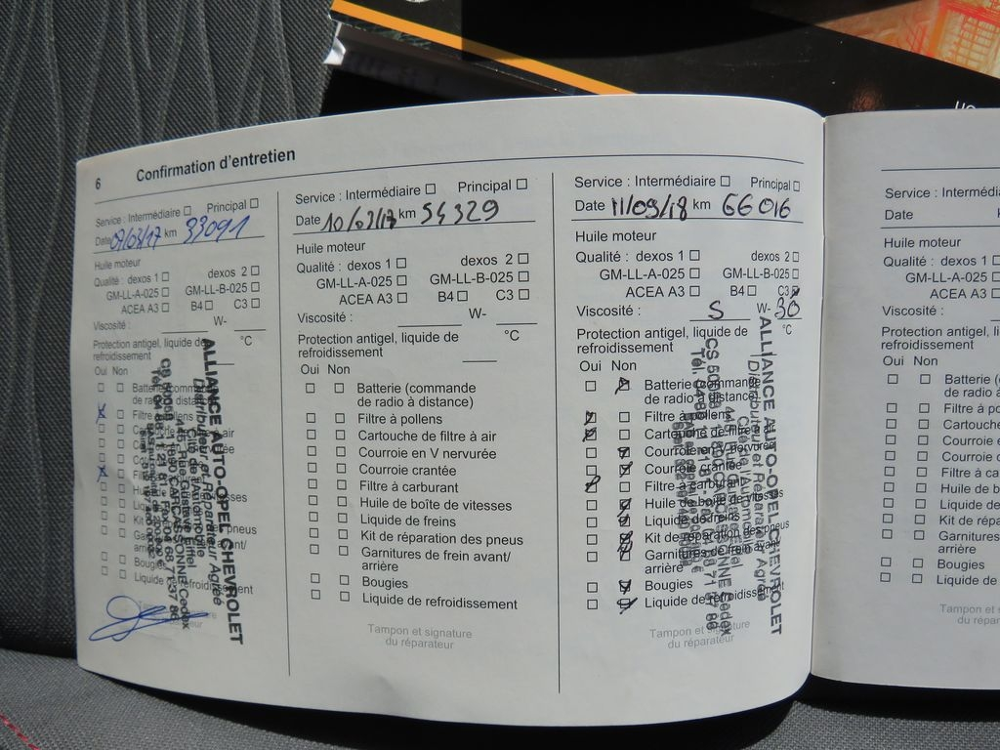 6 Confirmation d'entretien
Service : Intermédiaire Principal
Date 07/03/17 km 33091
Huile moteur
Qualité : dexos 1 dexos 2
GM-LL-A-025 GM-LL-B-025
ACEA A3 B4 C3
Viscosité : W-
Protection antigel, liquide de °C
refroidissement
Oui Non
ALLIANCE AUTO-OPEL CHEVROLET
Distributeur et Réparateur Agréé
Cité de l'Automobile
445, Rue Gustave Eiffel
CARCASSONNE Cedex
Service : Intermédiaire Principal
Date km 54329
Huile moteur
Qualité : dexos 1 dexos 2
GM-LL-A-025 GM-LL-B-025
ACEA A3 B4 C3
Viscosité : W-
Protection antigel, liquide de °C
refroidissement
Oui Non
Batterie (commande
de radio à distance)
Filtre à pollens
Cartouche de filtre à air
Courroie en V nervurée
Courroie crantée
Filtre à carburant
Huile de boîte de vitesses
Liquide de freins
Kit de réparation des pneus
Garnitures de frein avant/
arrière
Bougies
Liquide de refroidissement
Tampon et signature
du réparateur
Service : Intermédiaire Principal
Date 11/09/18 km 66016
Huile moteur
Qualité : dexos 1 dexos 2
GM-LL-A-025 GM-LL-B-025
ACEA A3 B4 C3
Viscosité : 5 W- 30
Protection antigel, liquide de °C
refroidissement
Oui Non
Batterie (commande
de radio à distance)
Filtre à pollens
Cartouche de filtre
Courroie en V nervurée
Courroie crantée
Filtre à carburant
Huile de boîte de vitesses
Liquide de freins
Kit de réparation des pneus
Garnitures de frein avant
arrière
Bougies
Liquide de refroidissement
Tampon et signature
du réparateur
ALLIANCE AUTO-OPEL CHEVROLET
Distributeur et Réparateur Agréé
Service : Intermédia
Date
Huile moteur
Qualité : dexos 1
GM-LL-A-025
ACEA A3
Viscosité :
Protection antigel, li
refroidissement
Oui Non
Batterie (c
de radio à
Filtre à po
Cartouche
Courroie e
Courroie c
Filtre à ca
Huile de b
Liquide de
Kit de répa
Garnitures
arrière
Bougies
Liquide de
Tampon et s
du répar